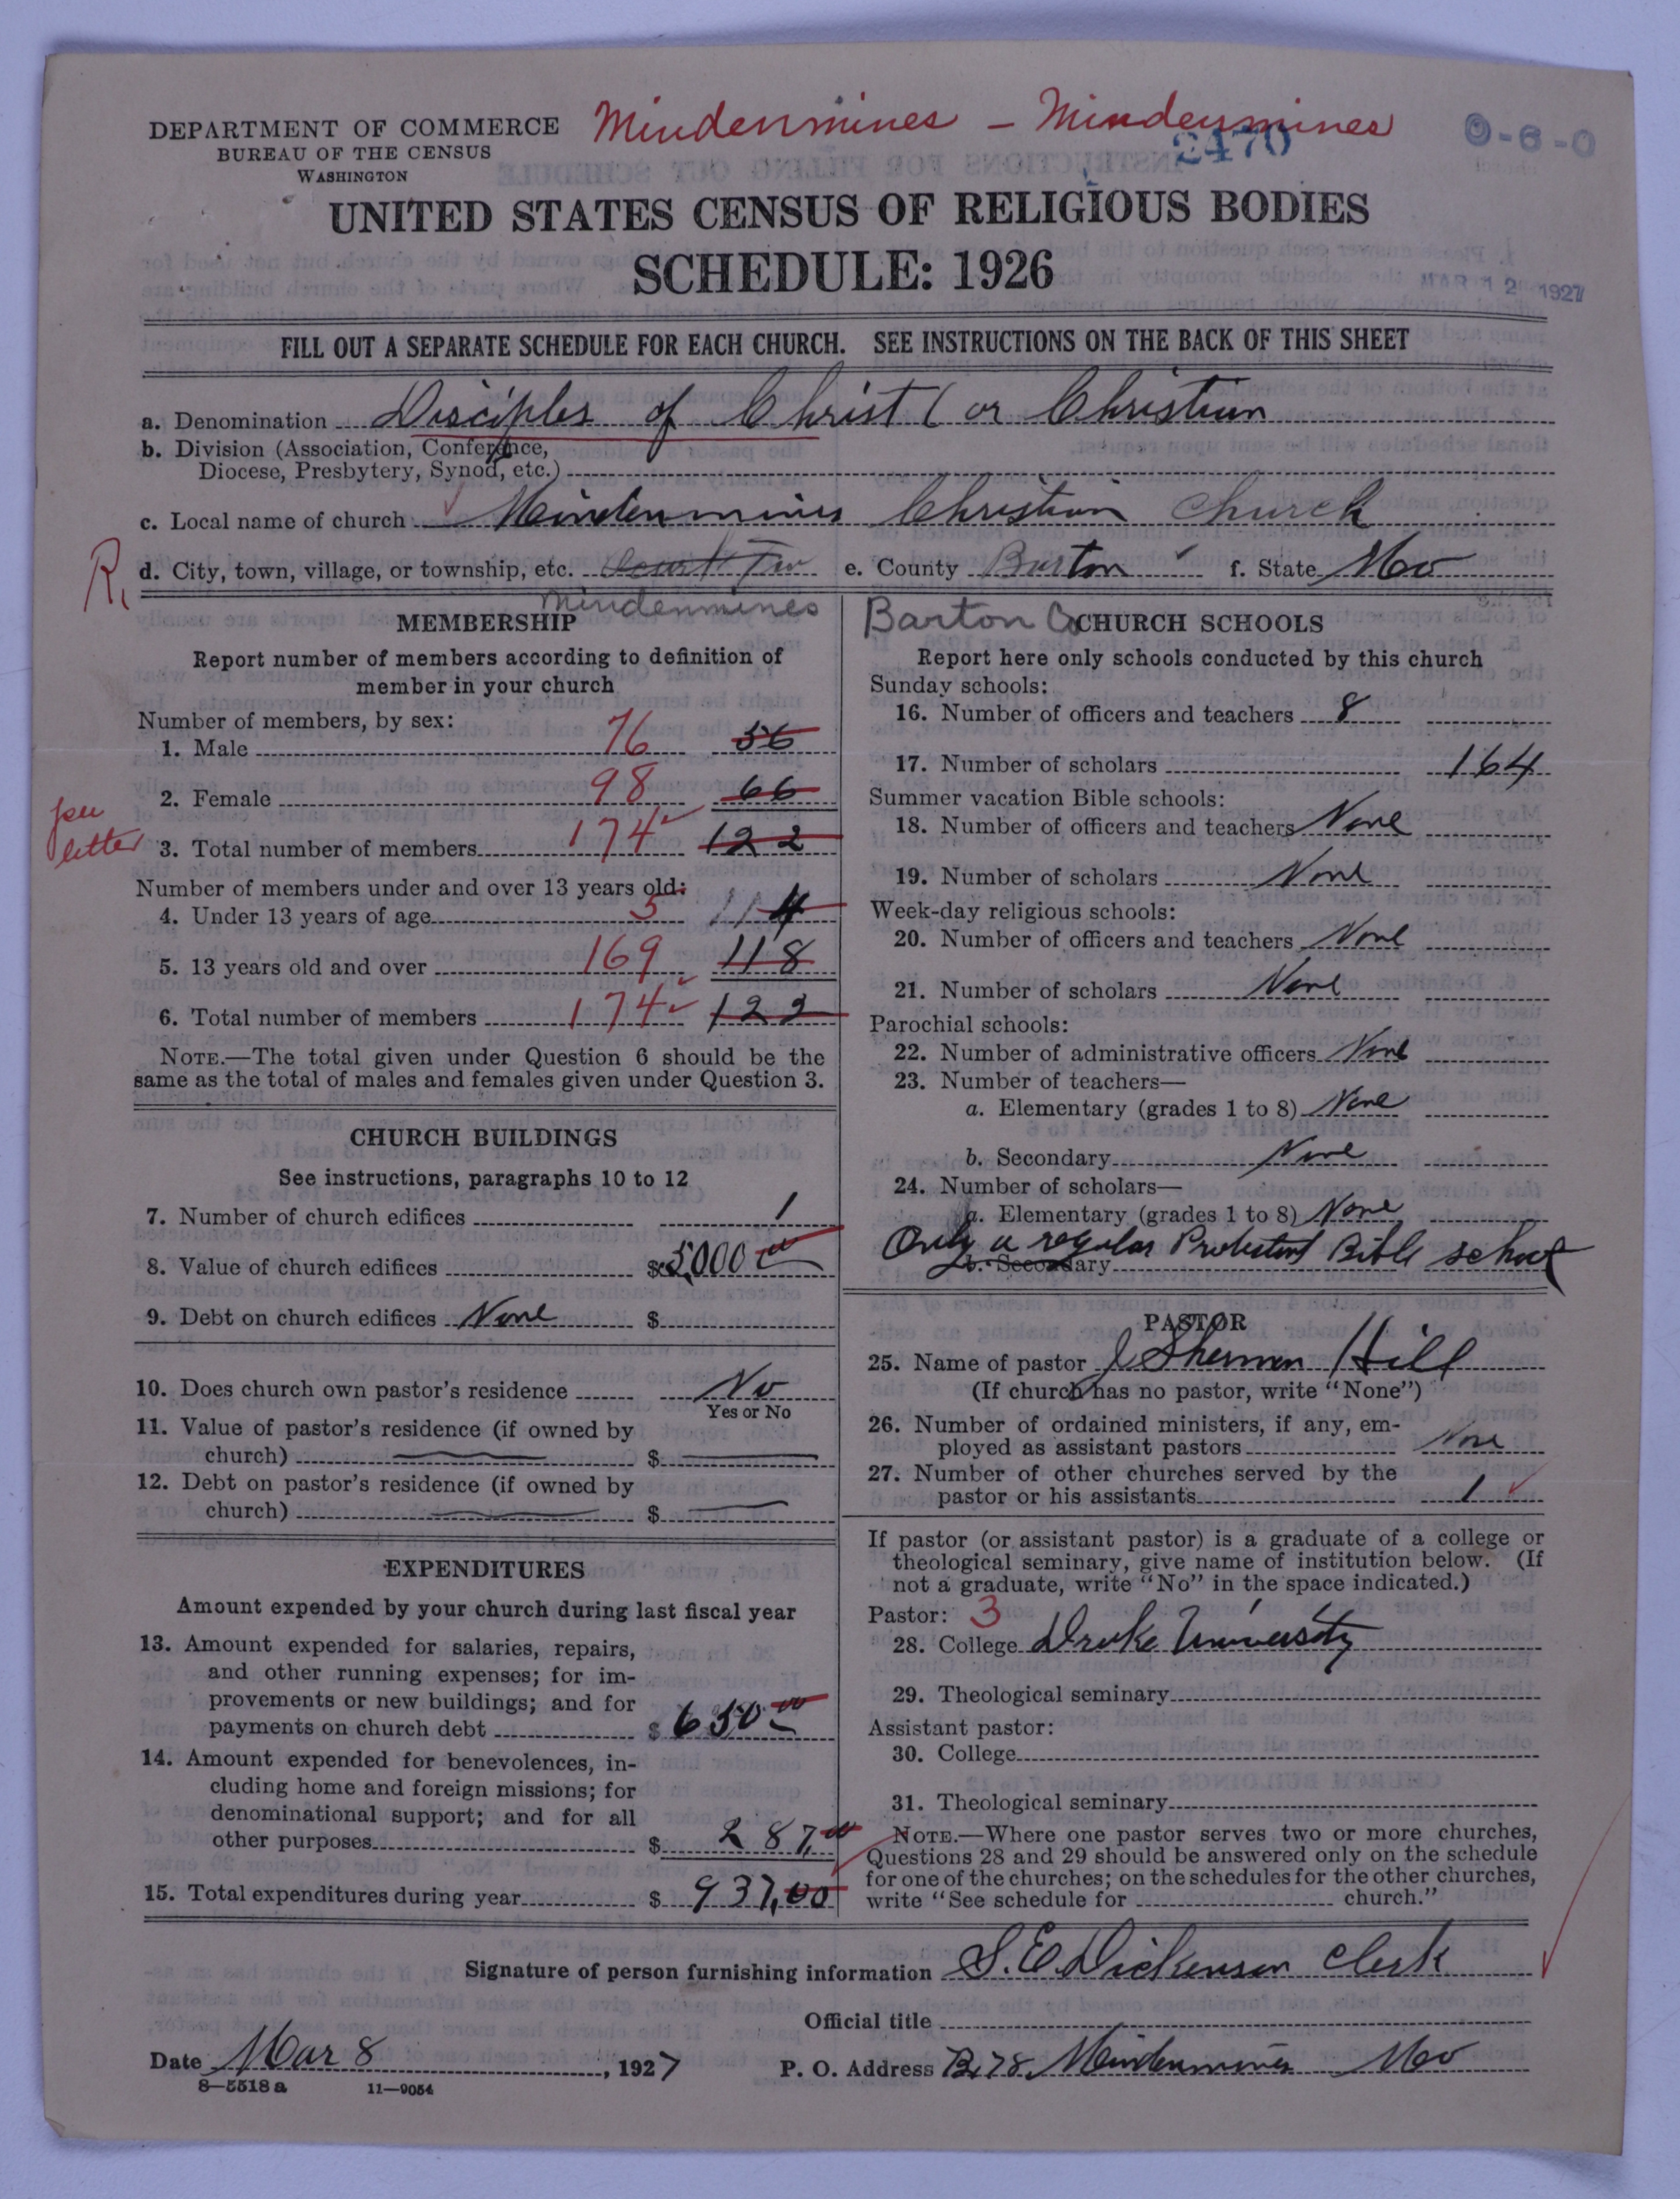 DEPARTMENT OF COMMERCE
BUREAU OF THE CENSUS
WASHINGTON
Mindenmines - Mindenmines
2470
0-6-0
UNITED STATES CENSUS OF RELIGIOUS BODIES
SCHEDULE: 1926
MAR 12 1927
FILL OUT A SEPARATE SCHEDULE FOR EACH CHURCH. SEE INSTRUCTIONS ON THE BACK OF THIS SHEET
a. Denomination Disciples of Christ (or Christian
b. Division (Association, Conference,
Diocese, Presbytery, Synod, etc.)
c. Local name of church Mindenmines Christian Church
R,
d. City, town, village, or township, etc. e. County Barton f. State Mo
Mindenmines
Barton Co
MEMBERSHIP
Report number of members according to definition of
member in your church
Number of members, by sex:
1. Male 76 56
2. Female 98 66
per
letter
3. Total number of members 174 122
Number of members under and over 13 years old:
4. Under 13 years of age 5 4
5. 13 years old and over 169 118
6. Total number of members 174 122
NOTE.—The total given under Question 6 should be the
same as the total of males and females given under Question 3.
CHURCH BUILDINGS
See instructions, paragraphs 10 to 12
7. Number of church edifices 1
8. Value of church edifices $5000 00
9. Debt on church edifices None $
10. Does church own pastor's residence No
Yes or No
11. Value of pastor's residence (if owned by
church) $
12. Debt on pastor's residence (if owned by
church) $
EXPENDITURES
Amount expended by your church during last fiscal year
13. Amount expended for salaries, repairs,
and other running expenses; for im-
provements or new buildings; and for
payments on church debt $ 650 00
14. Amount expended for benevolences, in-
cluding home and foreign missions; for
denominational support; and for all
other purposes $ 287,00
15. Total expenditures during year $ 937,00
CHURCH SCHOOLS
Report here only schools conducted by this church
Sunday schools:
16. Number of officers and teachers 8
17. Number of scholars 164
Summer vacation Bible schools:
18. Number of officers and teachers None
19. Number of scholars None
Week-day religious schools:
20. Number of officers and teachers None
21. Number of scholars None
Parochial schools:
22. Number of administrative officers None
23. Number of teachers—
a. Elementary (grades 1 to 8) None
b. Secondary None
24. Number of scholars—
a. Elementary (grades 1 to 8) None
Only a regular Protestant Bible school
b. Secondary
PASTOR
25. Name of pastor J Sherman Hill
(If church has no pastor, write "None")
26. Number of ordained ministers, if any, em-
ployed as assistant pastors None
27. Number of other churches served by the
pastor or his assistants 1
If pastor (or assistant pastor) is a graduate of a college or
theological seminary, give name of institution below. (If
not a graduate, write "No" in the space indicated.)
Pastor: 3
28. College Drake University
29. Theological seminary
Assistant pastor:
30. College
31. Theological seminary
NOTE.—Where one pastor serves two or more churches,
Questions 28 and 29 should be answered only on the schedule
for one of the churches; on the schedules for the other churches,
write "See schedule for church."
Signature of person furnishing information S. E. Dickenson Clerk
Official title
Date Mar 8, 1927 P. O. Address B, 78, Mindenmines Mo
8—5518a 11—9054